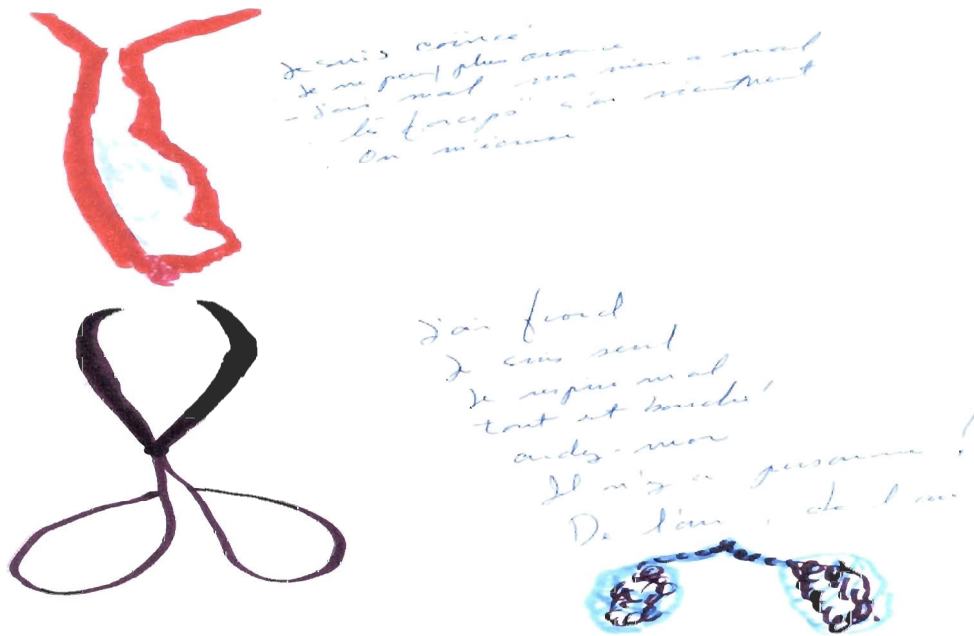 Je suis coincé
Je ne peux plus avancer
- j'ai mal ma mère a mal
les forceps s'en viennent
On m'écrase
J'ai froid
Je suis seul
Je respire mal
tout est bouché
aidez-moi
Il n'y a personne !
De l'air, de l'air